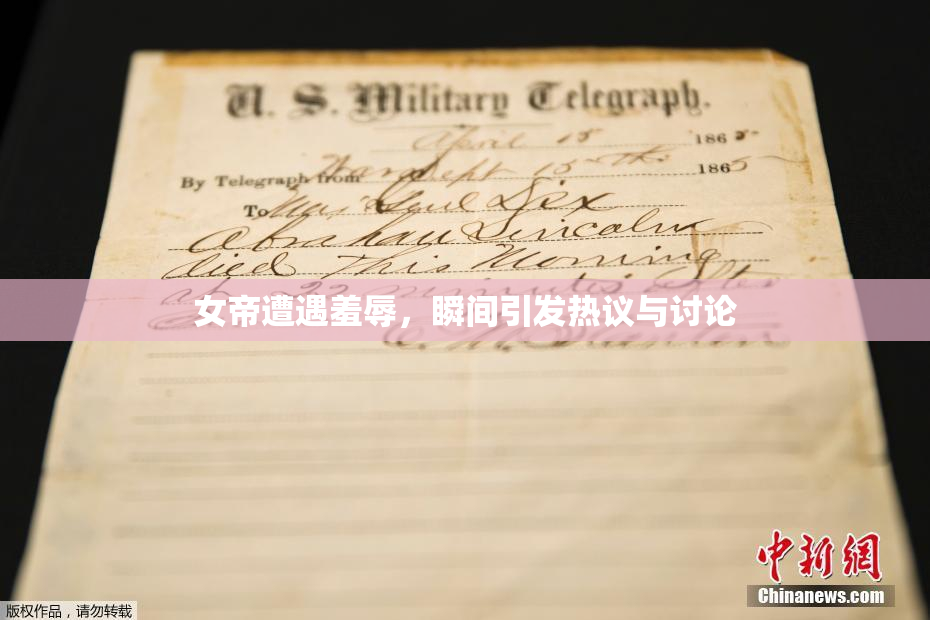 U. S. Military Telegraph.
April 15 1865
By Telegraph from War Dept 15th 1865
To Maj Genl Dix
Abraham Lincoln
died This Morning
at 22 minutes after
女帝遭遇羞辱，瞬间引发热议与讨论
中新网
Chinanews.com
版权作品，请勿转载